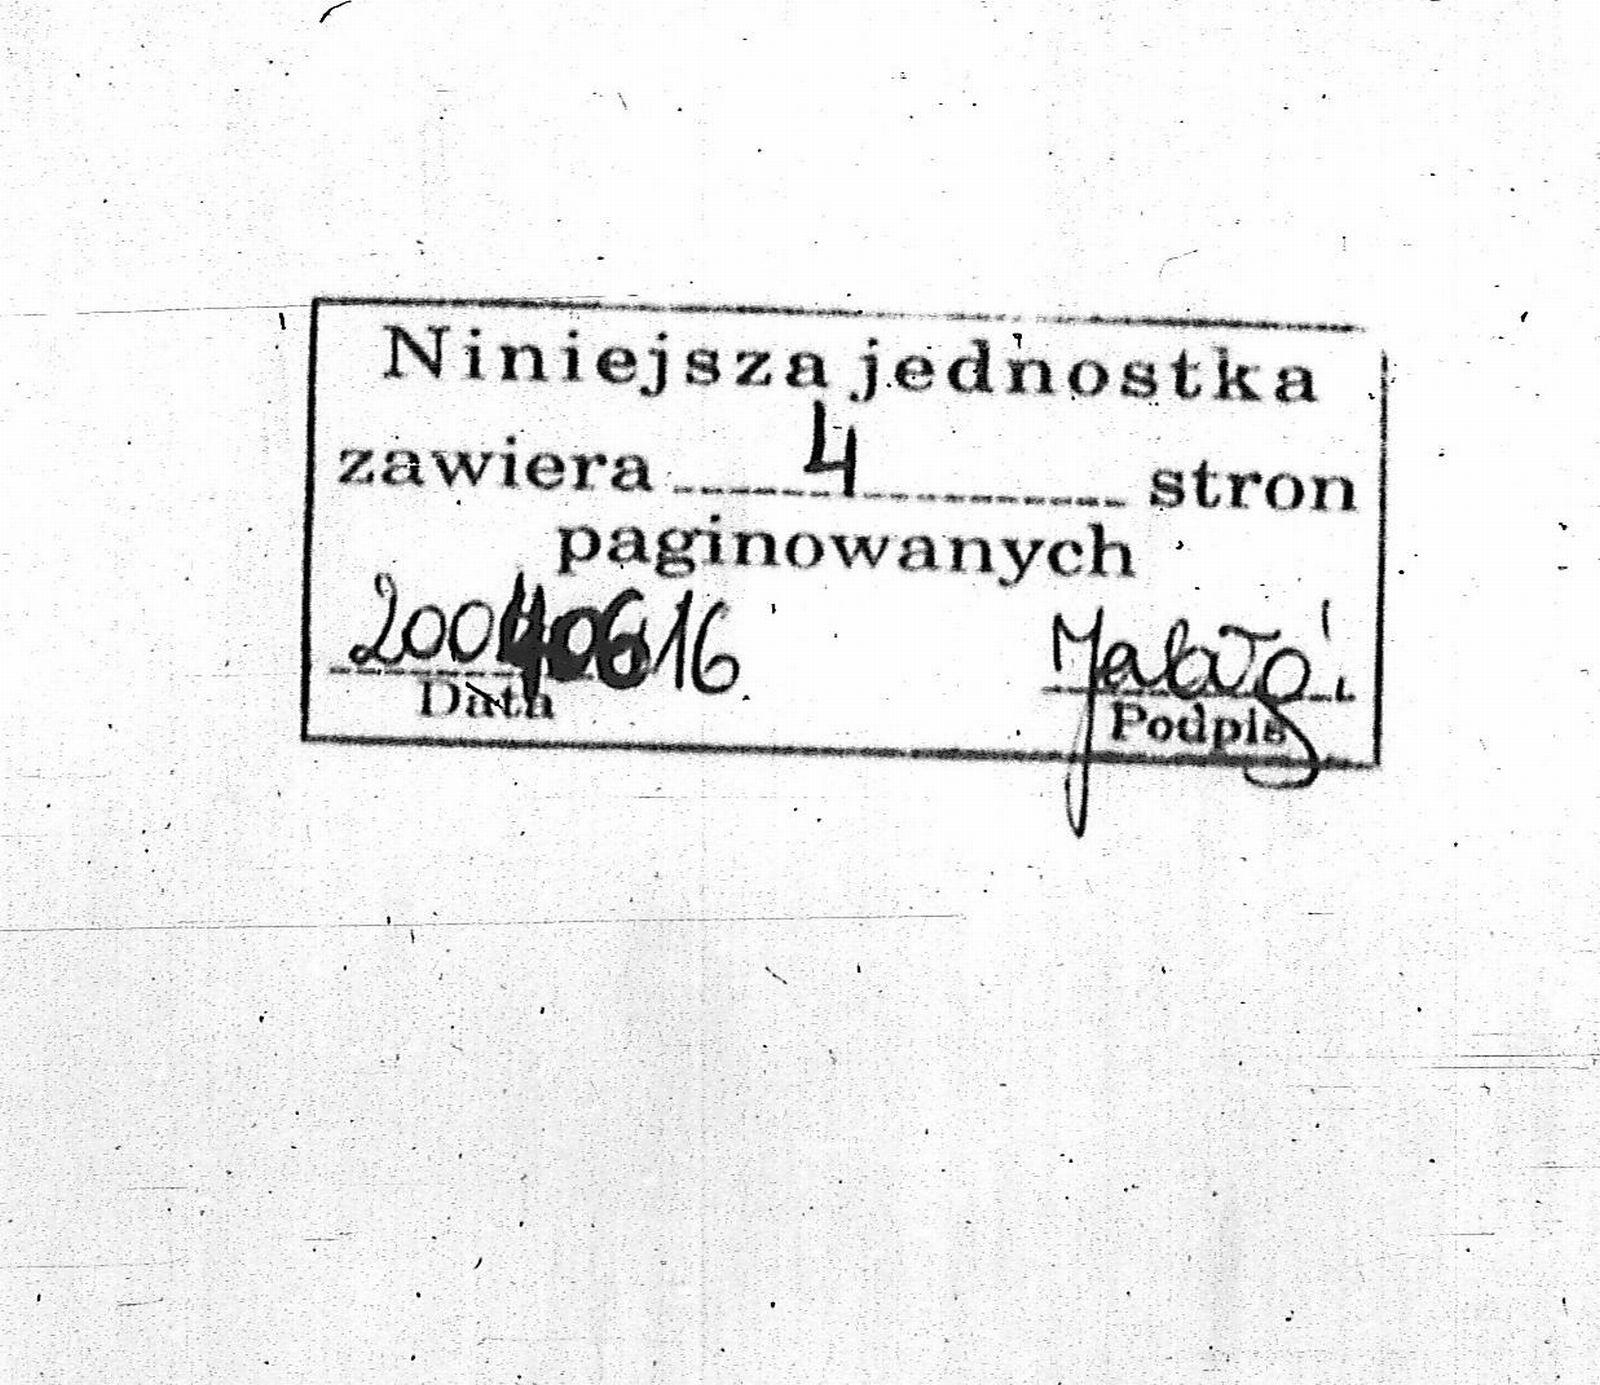 Niniejsza jednostka
zawiera 4 stron
paginowanych
20040616
Data Podpis